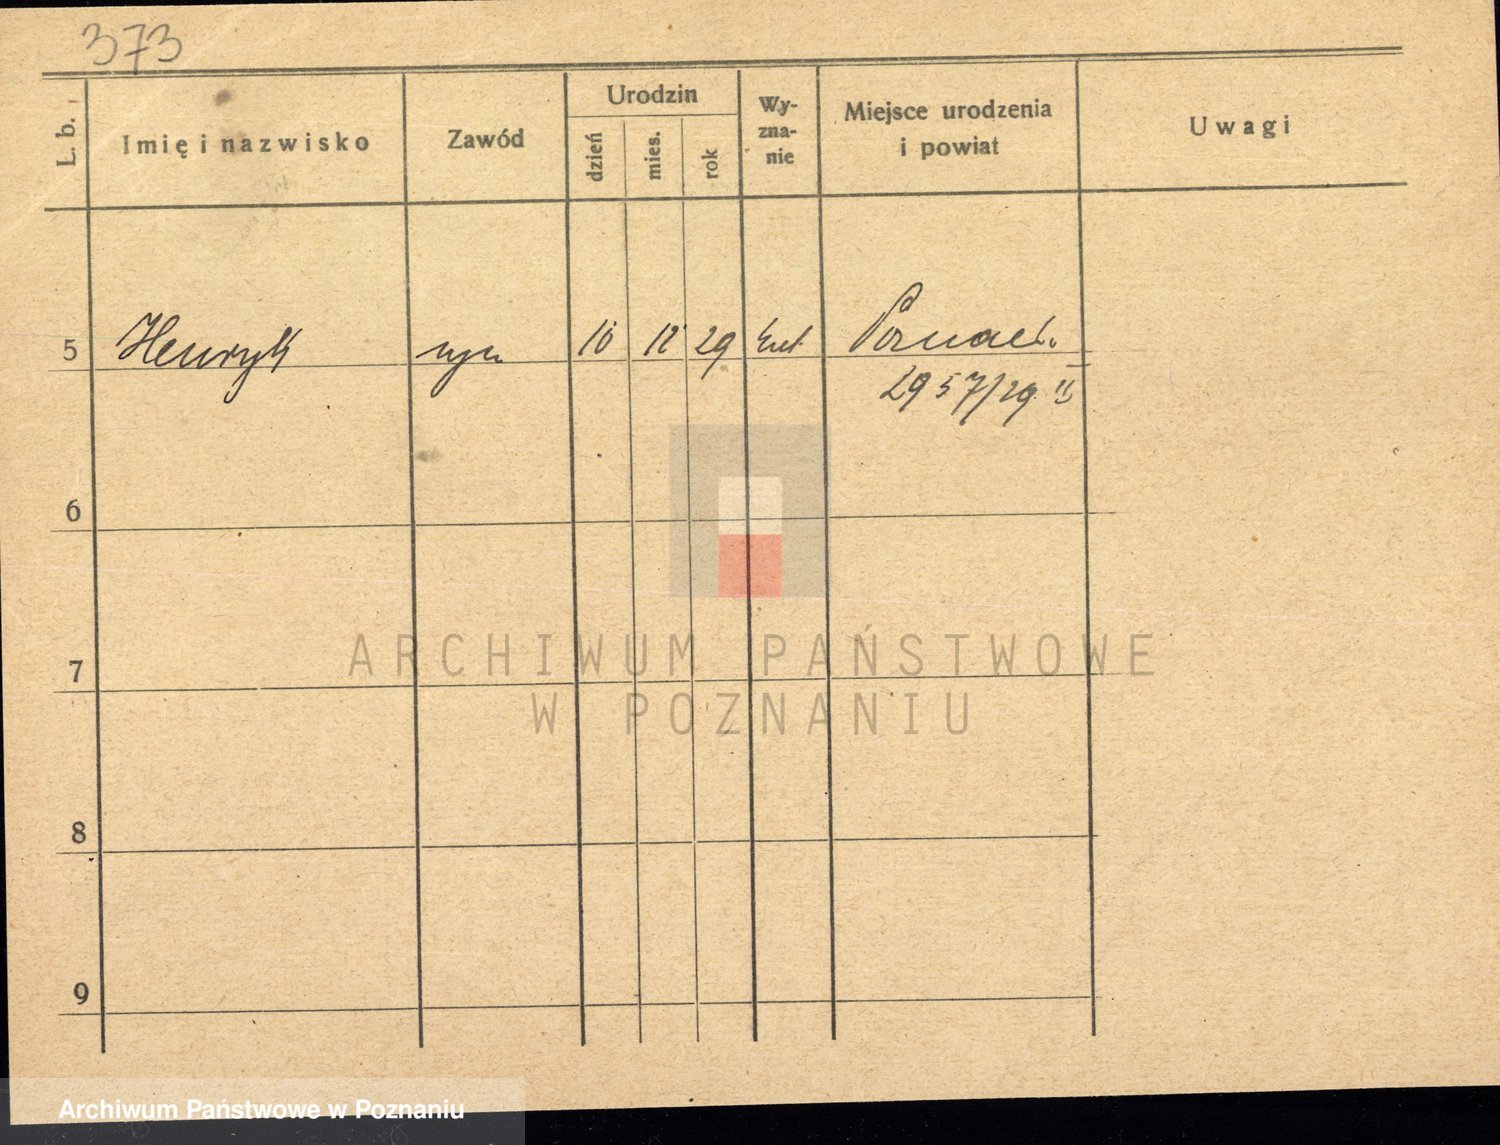 373
L. b.
Imię i nazwisko
Zawód
Urodzin
dzień
mies.
rok
Wy-
zna-
nie
Miejsce urodzenia
i powiat
Uwagi
5 Henryk syn 10 12 29 Poznań
2957/29 II
6
7
8
9
ARCHIWUM PAŃSTWOWE
W POZNANIU
Archiwum Państwowe w Poznaniu